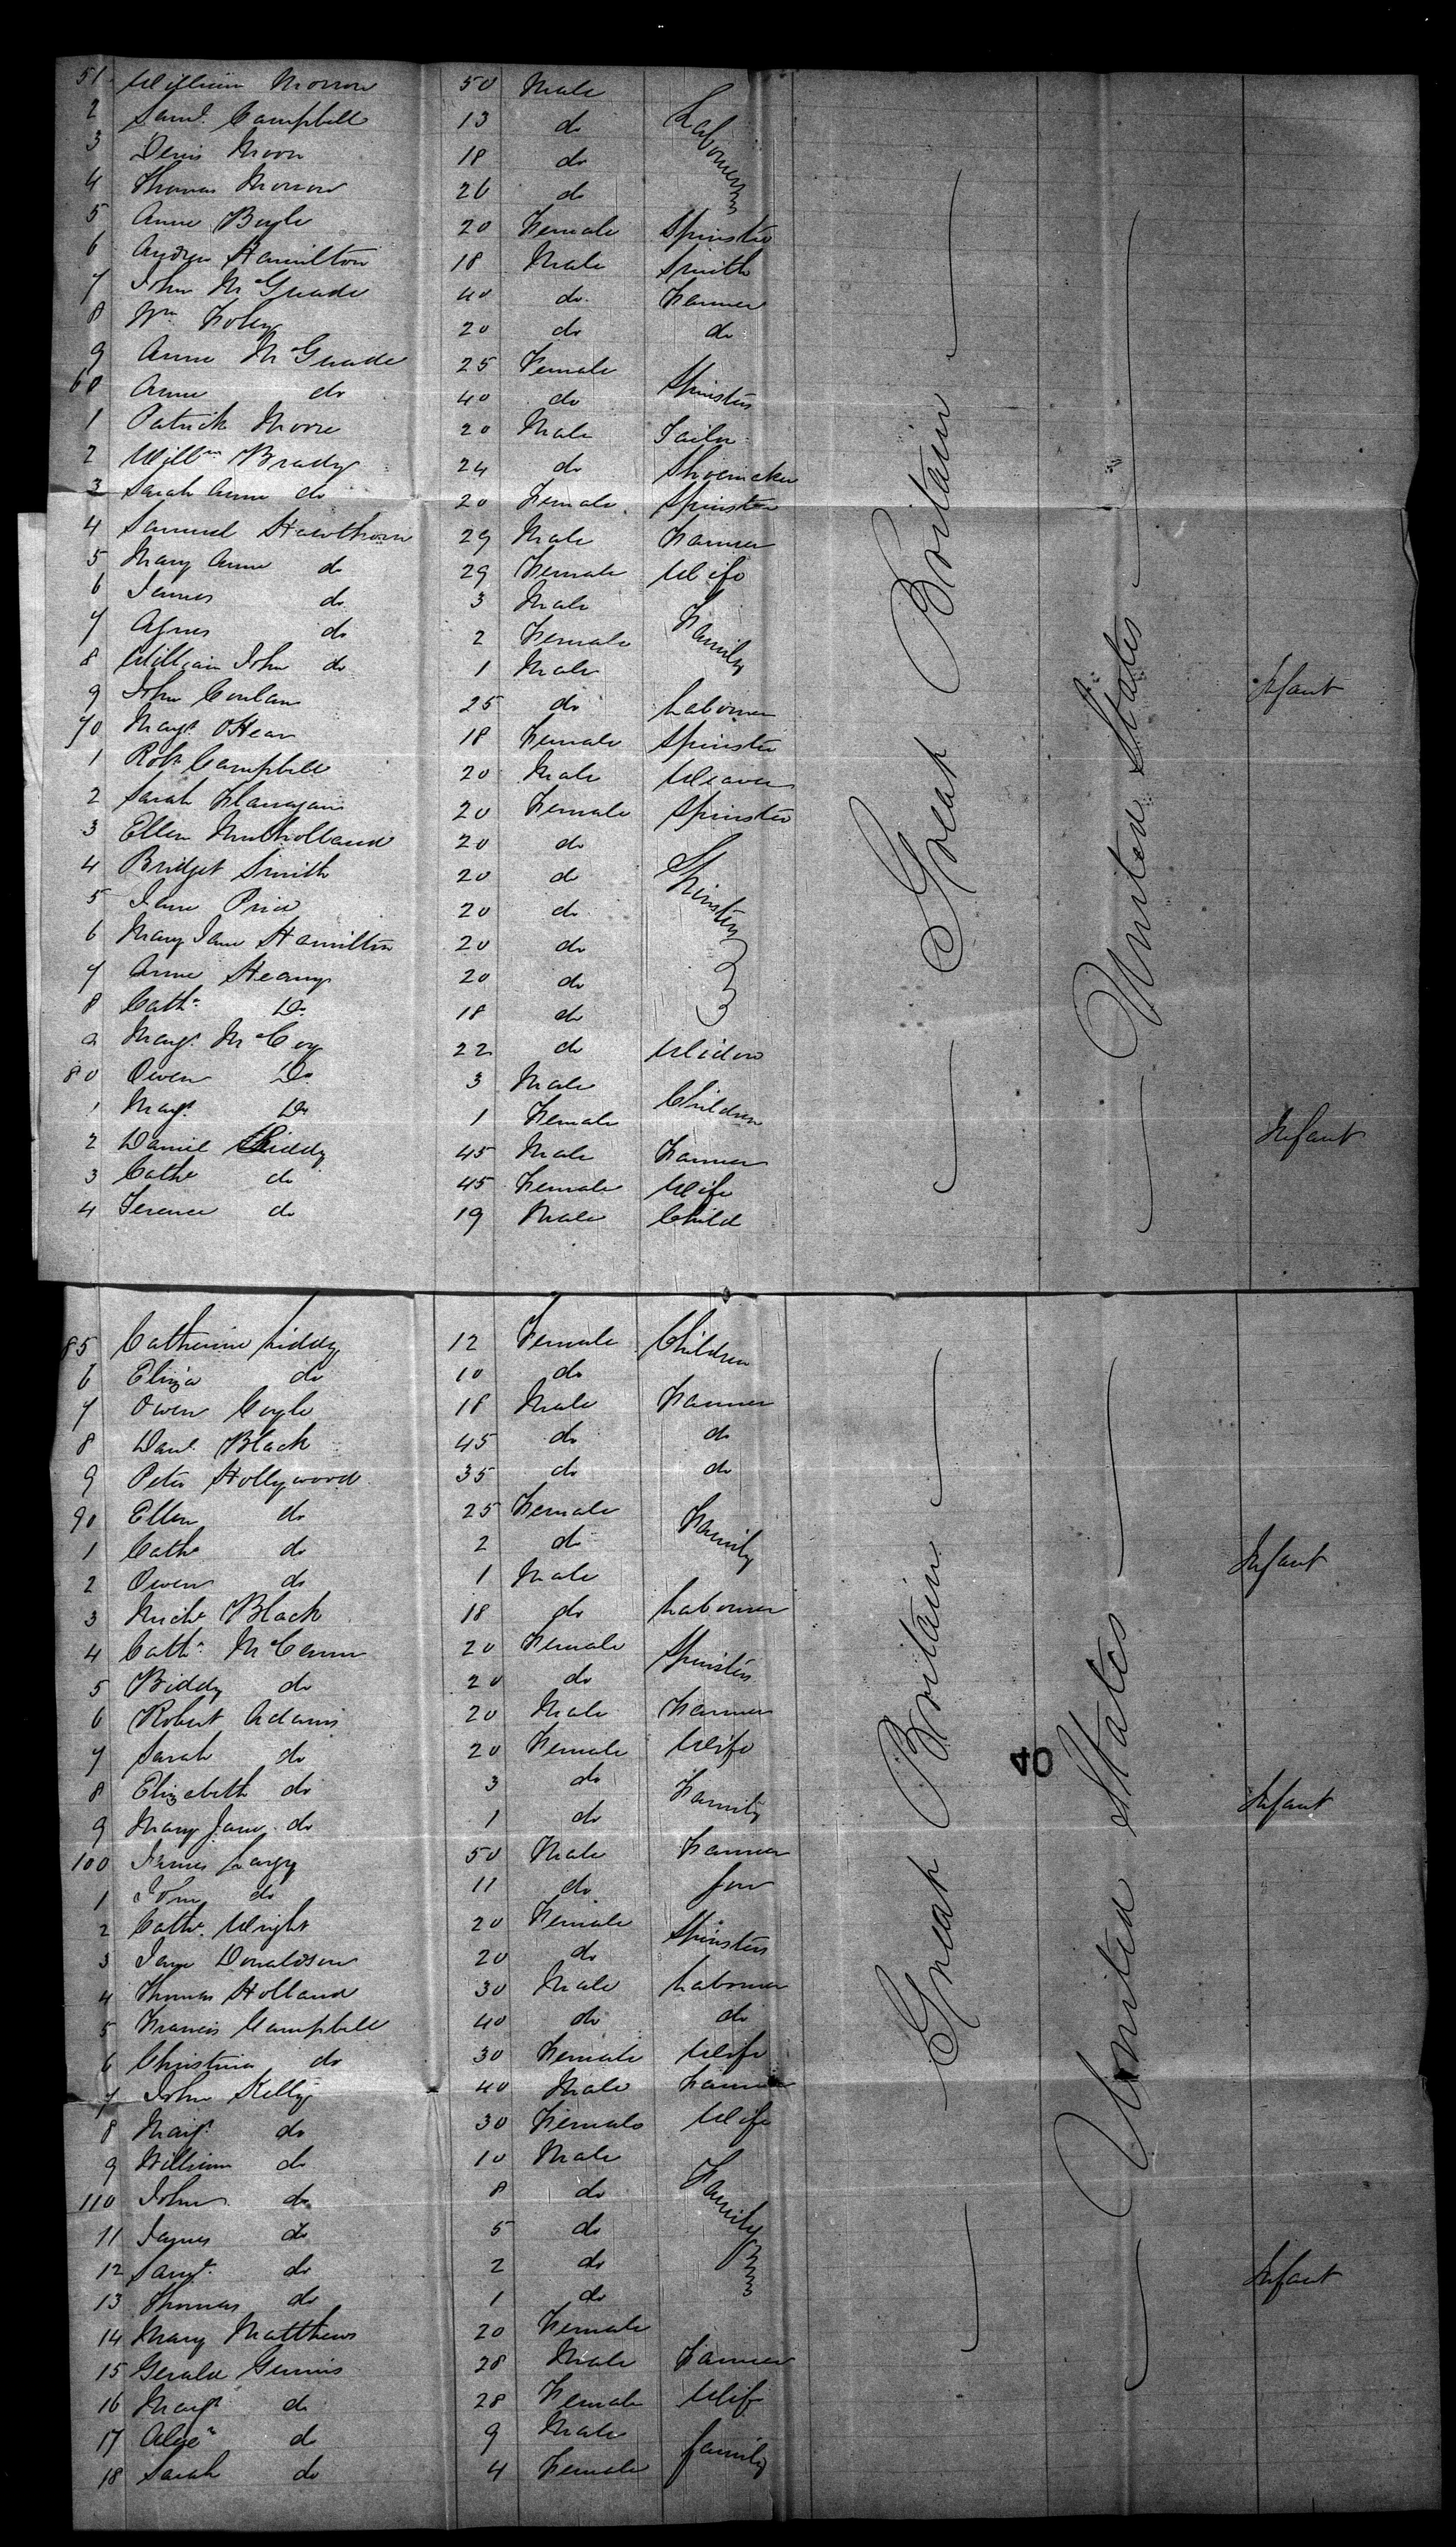 51 William Morrow 50 Male Labourers
2 Saml. Campbell 13 do
3 Denis Moon 18 do
4 Thomas Morrow 26 do
5 Anne Boyle 20 Female Spinster
6 Andrew Hamilton 18 Male Smith
7 John McGuade 40 do. Farmer
8 Wm Foley 20 do do
9 Anne McGuade 25 Female Spinsters
60 Anne do 40 do
1 Patrick Moore 20 Male Tailor
2 Willm Brady 24 do Shoemaker
3 Sarah Anne do 20 Female Spinster
4 Samuel Hawthorn 29 Male Farmer
5 Mary Anne do 29 Female Wife
6 James do 3 Male Family
7 Agnes do 2 Female
8 William John do 1 Male Infant
9 John Conlan 25 do Labourer
70 Margt. OHear 18 Female Spinster
1 Robt Campbell 20 Male Weaver
2 Sarah Flanagan 20 Female Spinster
3 Ellen Mulholland 20 do Spinsters
4 Bridget Smith 20 do
5 Jane Price 20 do
6 Mary Jane Hamilton 20 do
7 Anne Heany 20 do
8 Cathe. Do. 18 do
9 Margt. McCoy 22 do Widow
80 Owen Do. 3 Male Children
1 Margt. Do 1 Female Infant
2 Daniel Liddy 45 Male Farmer
3 Cathe do 45 Female Wife
4 Terence do 19 Male Child
Great Britain
United States
85 Catherine Liddy 12 Female Children
6 Eliza do 10 do
7 Owen Coyle 18 Male Farmer
8 Danl. Black 45 do do
9 Peter Hollywood 35 do do
90 Ellen do 25 Female Family
1 Cathe do 2 do
2 Owen do 1 Male Infant
3 Miche Black 18 do Labourer
4 Cathe. McCann 20 Female Spinsters
5 Biddy do 20 do
6 Robert Adams 20 Male Farmer
7 Sarah do 20 Female Wife
8 Elizabeth do 3 do Family
9 Mary Jane do 1 do Infant
100 James Largy 50 Male Farmer
1 John do 11 do Son
2 Cathe. Wright 20 Female Spinsters
3 Jane Donaldson 20 do
4 Thomas Holland 30 Male Labourer
5 Francis Campbell 40 do do
6 Christina do 30 Female Wife
7 John Kelly 40 Male Farmer
8 Margt. do 30 Female Wife
9 William do 10 Male Family
110 John do 8 do
11 James do 5 do
12 Saml. do 2 do
13 Thomas do 1 do Infant
14 Mary Matthews 20 Female
15 Gerald Gernis 28 Male Farmer
16 Margt do 28 Female Wife
17 Alexr do 9 Male family
18 Sarah do 4 Female
Great Britain
United States
40